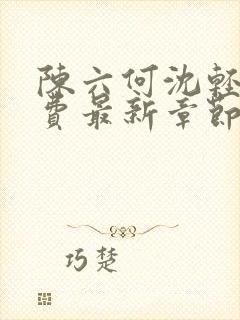 陳六何沈輕
費最新章節
巧楚